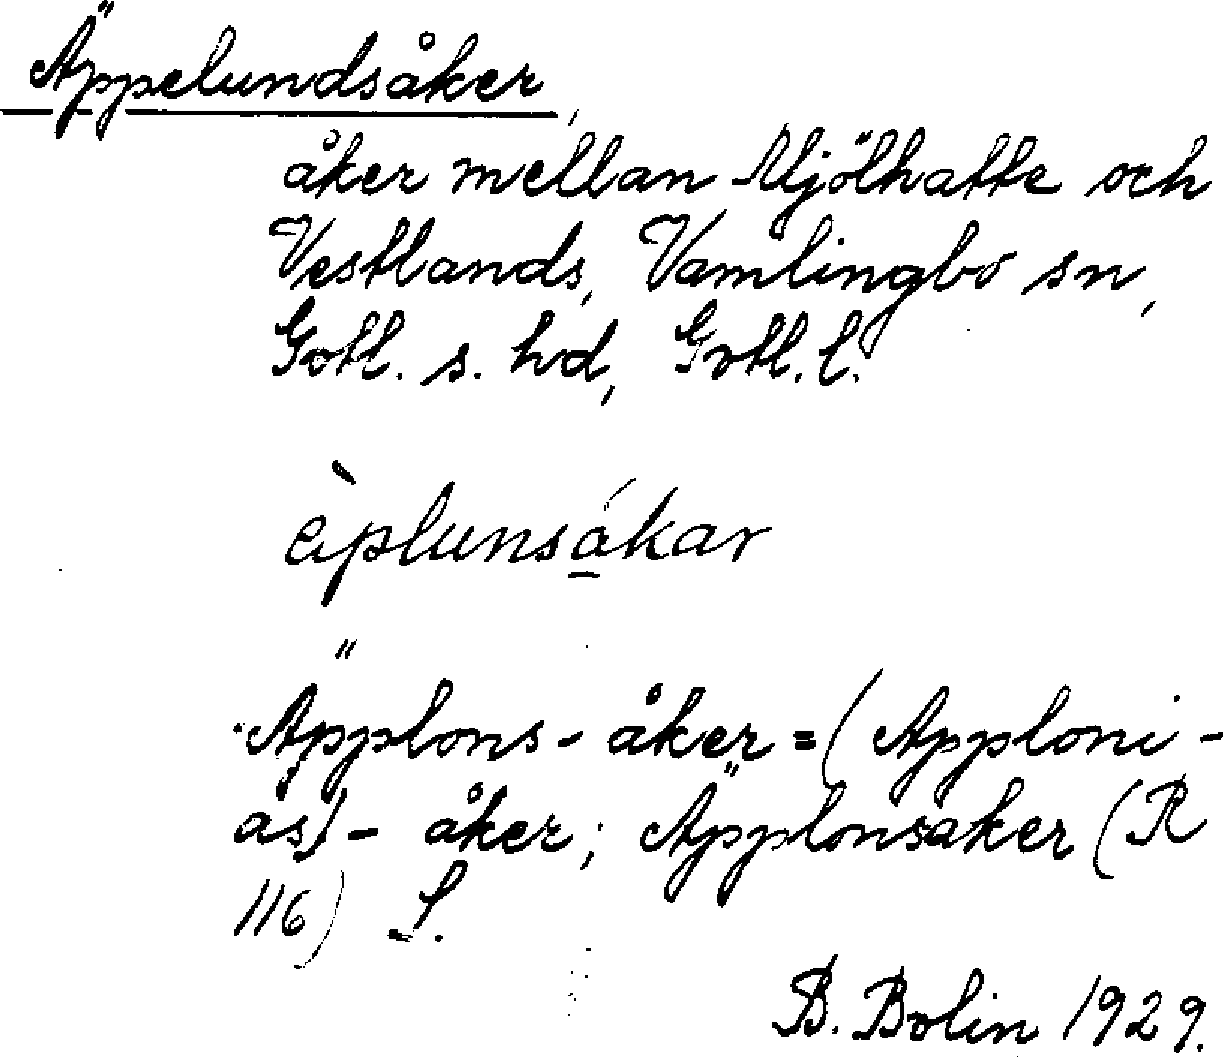 Äppelundsåker,
åker mellan Mjölhatte och
Vestlands, Vamlingbo sn,
Gotl. s. hd, Gotl. l.
äplunsákar
Äpplons-åker = (Apploni-
as)- åker; Äpplonsaker (R
116) S.
B. Bolin 1929.